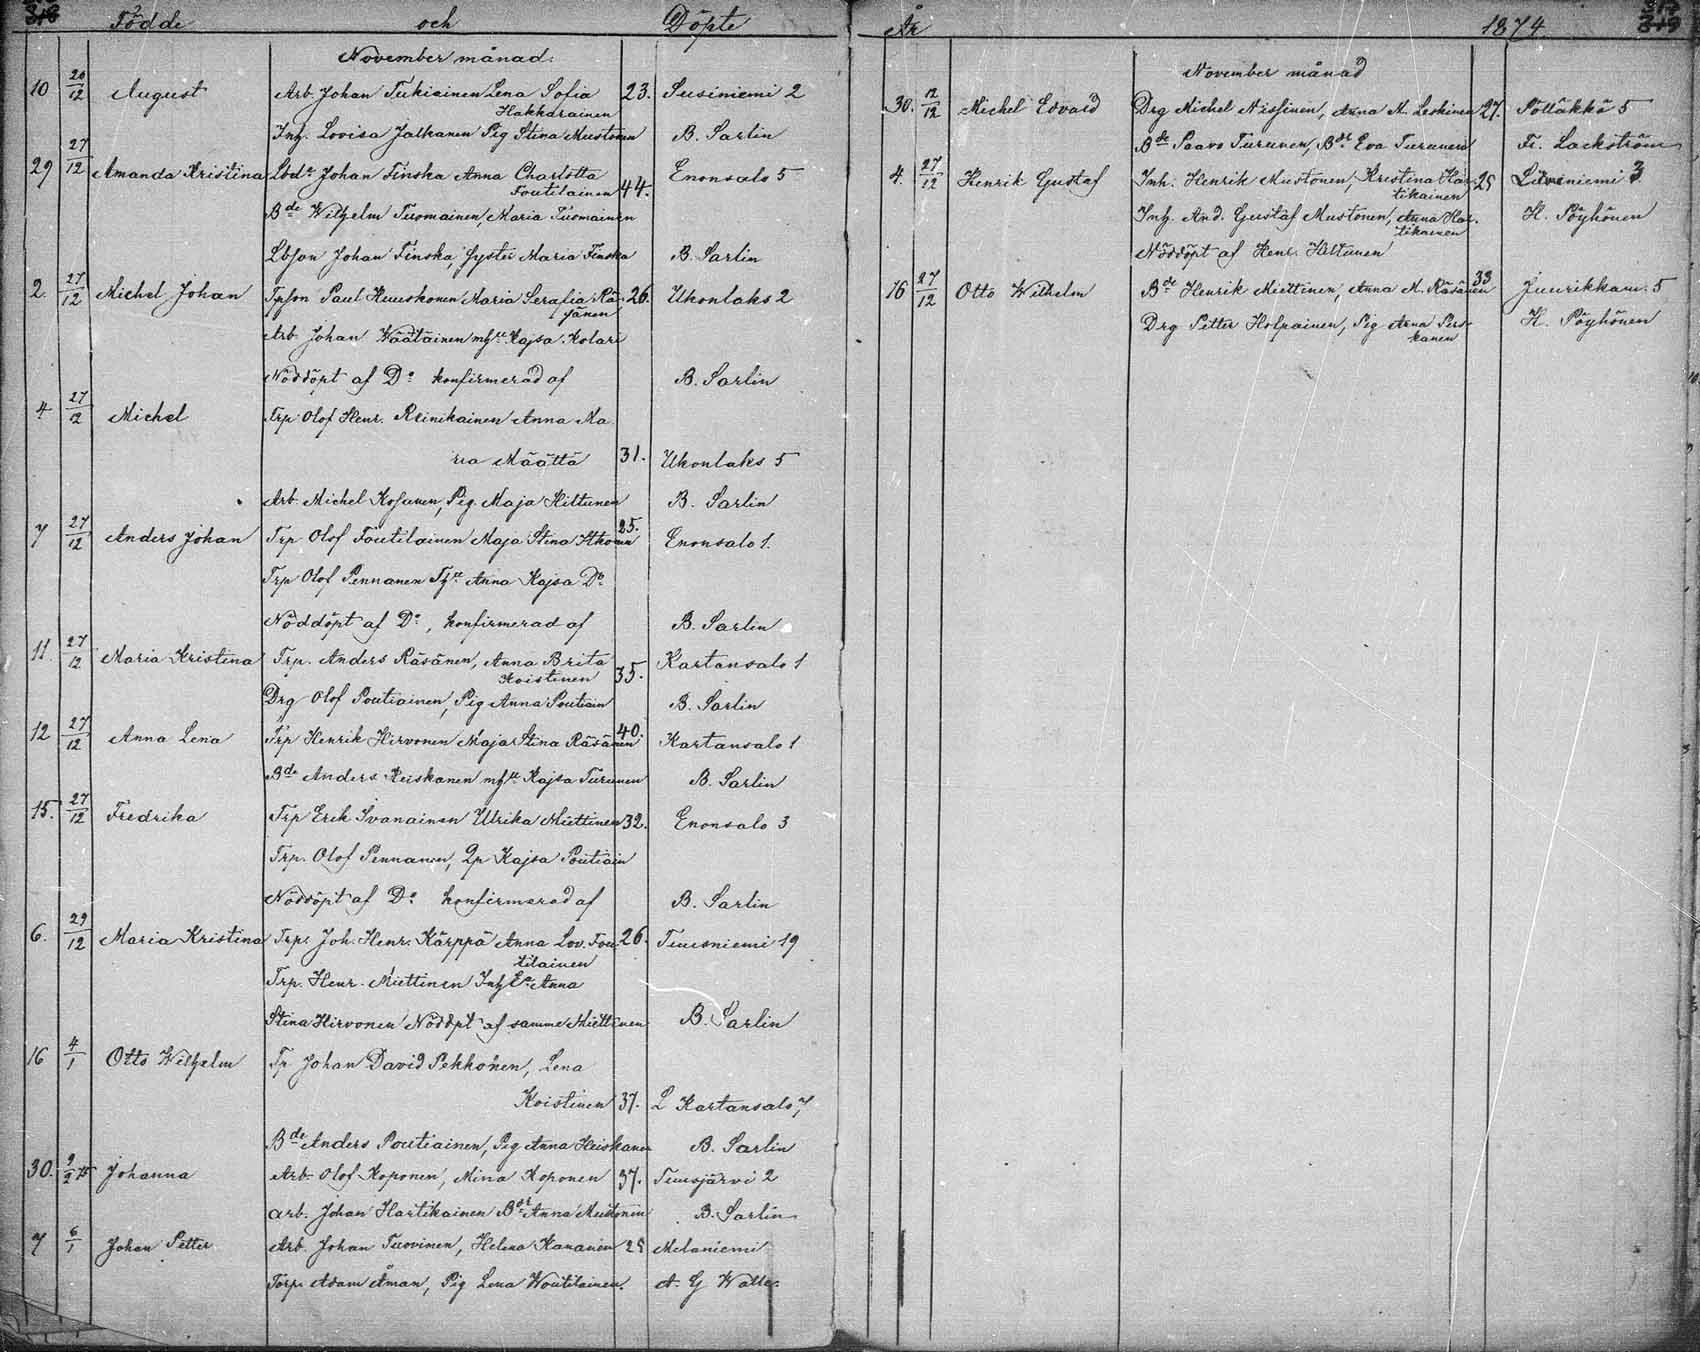 Födde och Döpte
November månad:
10 20/12 August Arb. Johan Tukiainen Lena Sofia 23. Susiniemi 2
Hakkarainen
Inh. Lovisa Jalkanen Pig Stina Mustonen B. Sarlin
29 27/12 Amanda Kristina Lbdr Johan Finska Anna Charlotta Enonsalo 5
Foutilainen 44.
Bde Wilhelm Tuomainen, Maria Tuomainen
Lbson Johan Finska, Syster Maria Finska B. Sarlin
2 27/12 Michel Johan Tpson Paul Huuskonen Maria Serafia Rä- 26. Ukonlaks 2
sänen
Arb. Johan Wäätäinen mhu Kajsa Kolari
Nöddöpt af Do konfirmerad af B. Sarlin
4 27/12 Michel Trp Olof Henr. Reinikainen Anna Ma
ria Määttä 31. Ukonlaks 5
Arb. Michel Kosunen, Pig. Maja Hiltunen B. Sarlin
7 27/12 Anders Johan Trp Olof Foutilainen Maja Stina Itkonen 25. Enonsalo 1.
Trp Olof Pennanen Anna Kajsa Do
Nöddöpt af Do, konfirmerad af B. Sarlin
11 27/12 Maria Kristina Trp. Anders Räsänen, Anna Brita Kartansalo 1
Koistinen 35.
Drg Olof Poutiainen, Pig Anna Poutiain B. Sarlin
12 27/12 Anna Lena Trp Henrik Hirvonen Maja Stina Räsänen 40. Kartansalo 1
Bde Anders Heiskanen mhu Kajsa Turunen B. Sarlin
15. 27/12 Fredrika Trp Erik Ivanainen Ulrika Miettinen 32. Enonsalo 3
Trp. Olof Pennanen, Kajsa Poutiain
Nöddöpt af Do konfirmerad af B. Sarlin
6. 29/12 Maria Kristina Trp. Joh. Henr. Kärppä Anna Lov. Fou- 26. Tuusniemi 19
tilainen
Trp. Henr. Miettinen Inh Ea Anna
Stina Hirvonen Nöddpt af samme Miettinen B. Sarlin
16 4/1 Otto Wilhelm Tp Johan David Pekkonen, Lena
Koistinen 37. L Kartansalo 7
Bde Anders Poutiainen, Pig Anna Heiskanen B. Sarlin
30. 9/2 Johanna Arb. Olof Koponen, Mina Koponen 37. Tuusjärvi 2
arb. Johan Hartikainen Bdr Anna Mustonen B. Sarlin
7 6/1 Johan Petter Arb. Johan Tuovinen, Helena Kananen 25 Melaniemi
Torp. Adam Åman, Pig Lena Woutilainen. A. G Walle.
År 1874
November månad
30. 12/12 Michel Edvard Drg Michel Nissinen, Anna M. Leskinen 27. Pölläkkö 5
Bde Paavo Turunen, Bdr Eva Turunen Fr. Lackström
4. 27/12 Henrik Gustaf Inh. Henrik Mustonen, Kristina Har- 25 Litmaniemi 3
tikainen
Inh. And. Gustaf Mustonen, Anna Har- H. Pöyhönen
tikainen
Nöddöpt af Henr. Hiltunen
16 27/12 Otto Wilhelm Bde Henrik Miettinen, Anna M. Räsänen 33 Juurikkam. 5
Drg Petter Holpainen, Pig Anna Pers- H. Pöyhönen
kanen